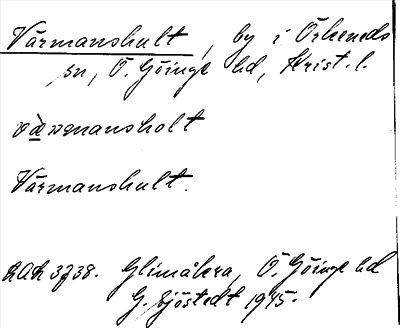 Värmanshult, by i Örkeneds
sn, Ö. Göinge hd, Krist. l.
Värmanshult.
Glimåkra, Ö. Göinge hd
G. Sjöstedt 1945.